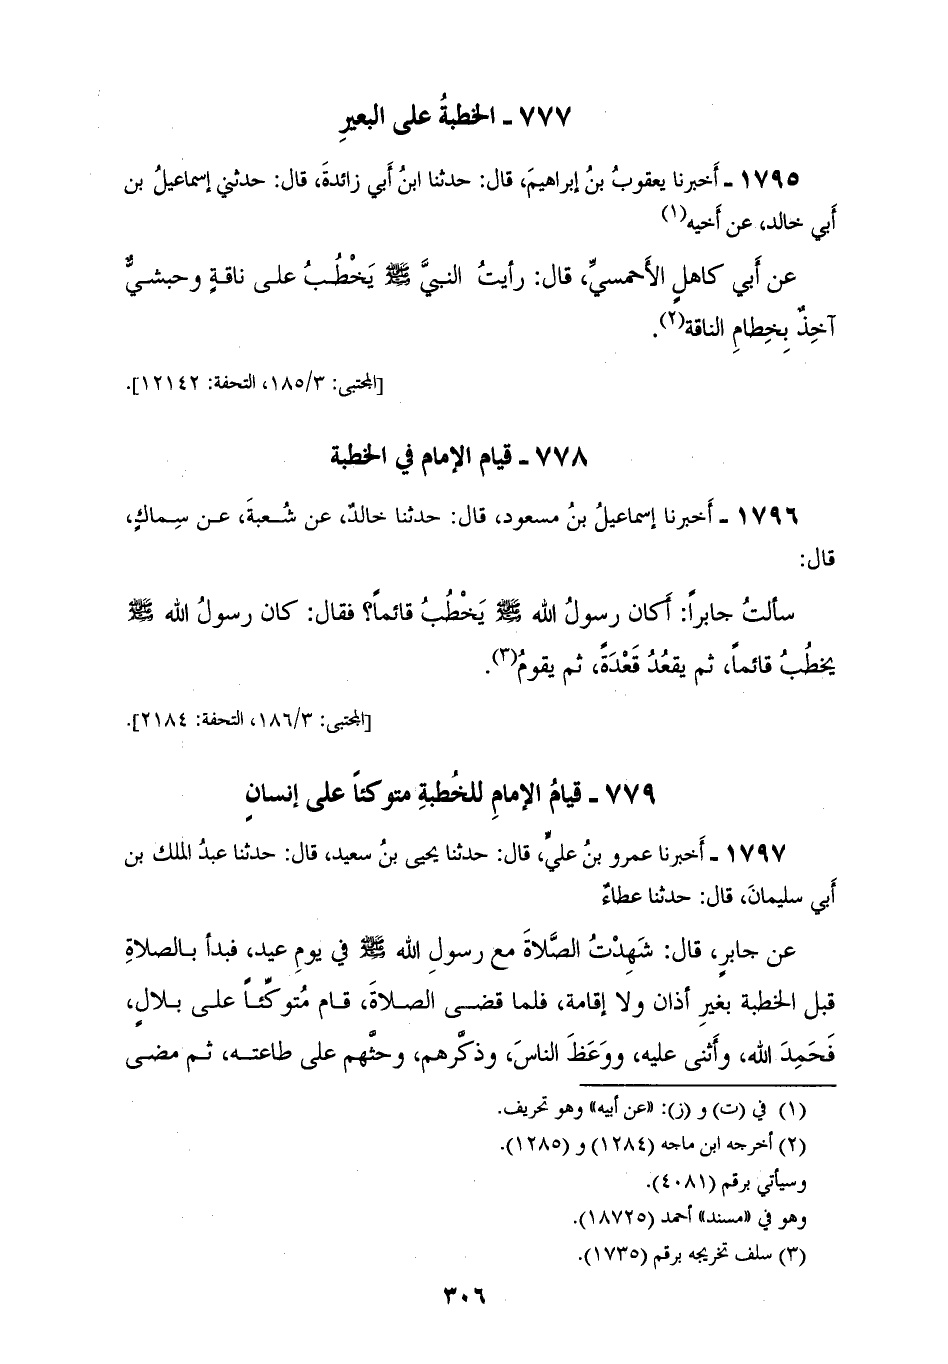 ٧٧٧ - الخطبةُ على البعيرِ
١٧٩٥ - أَخبرنا يعقوبُ بنُ إبراهيمَ، قال: حدثنا ابنُ أَبي زائدةَ، قال: حدثني إسماعيلُ بن
أَبي خالد، عن أَخيه(١)
عن أَبي كاهلٍ الأَحمسيِّ، قال: رأيتُ النبيَّ ﷺ يَخْطُبُ على ناقةٍ وحبشيٌّ
آخِذٌ بِخِطامِ الناقة(٢).
[المجتبى: ١٨٥/٣، التحفة: ١٢١٤٢].
٧٧٨ - قيام الإمام في الخطبة
١٧٩٦ - أَخبرنا إسماعيلُ بنُ مسعود، قال: حدثنا خالدٌ، عن شُعبةَ، عن سِماكٍ،
قال:
سألتُ جابراً: أَكان رسولُ الله ﷺ يَخْطُبُ قائماً؟ فقال: كان رسولُ الله ﷺ
يخطُبُ قائماً، ثم يقعُدُ قَعْدَةً، ثم يقومُ(٣).
[المجتبى: ١٨٦/٣، التحفة: ٢١٨٤].
٧٧٩ - قيامُ الإمامِ للخُطبةِ متوكئاً على إنسانٍ
١٧٩٧ - أَخبرنا عمرو بنُ عليٍّ، قال: حدثنا يحيى بنُ سعيد، قال: حدثنا عبدُ الملك بن
أَبي سليمانَ، قال: حدثنا عطاءٌ
عن جابرٍ، قال: شَهِدْتُ الصَّلاةَ مع رسولِ الله ﷺ في يومِ عيد، فبدأ بالصلاةِ
قبل الخطبة بغيرِ أذان ولا إقامة، فلما قضى الصلاةَ، قام مُتوكِّئاً على بلالٍ،
فَحَمِدَ الله، وأَثنى عليه، ووَعَظَ الناسَ، وذكَّرهم، وحثَّهم على طاعته، ثم مضى
(١) في (ت) و (ز): «عن أبيه» وهو تحريف.
(٢) أخرجه ابن ماجه (١٢٨٤) و (١٢٨٥).
وسيأتي برقم (٤٠٨١).
وهو في «مسند» أحمد (١٨٧٢٥).
(٣) سلف تخريجه برقم (١٧٣٥).
٣٠٦